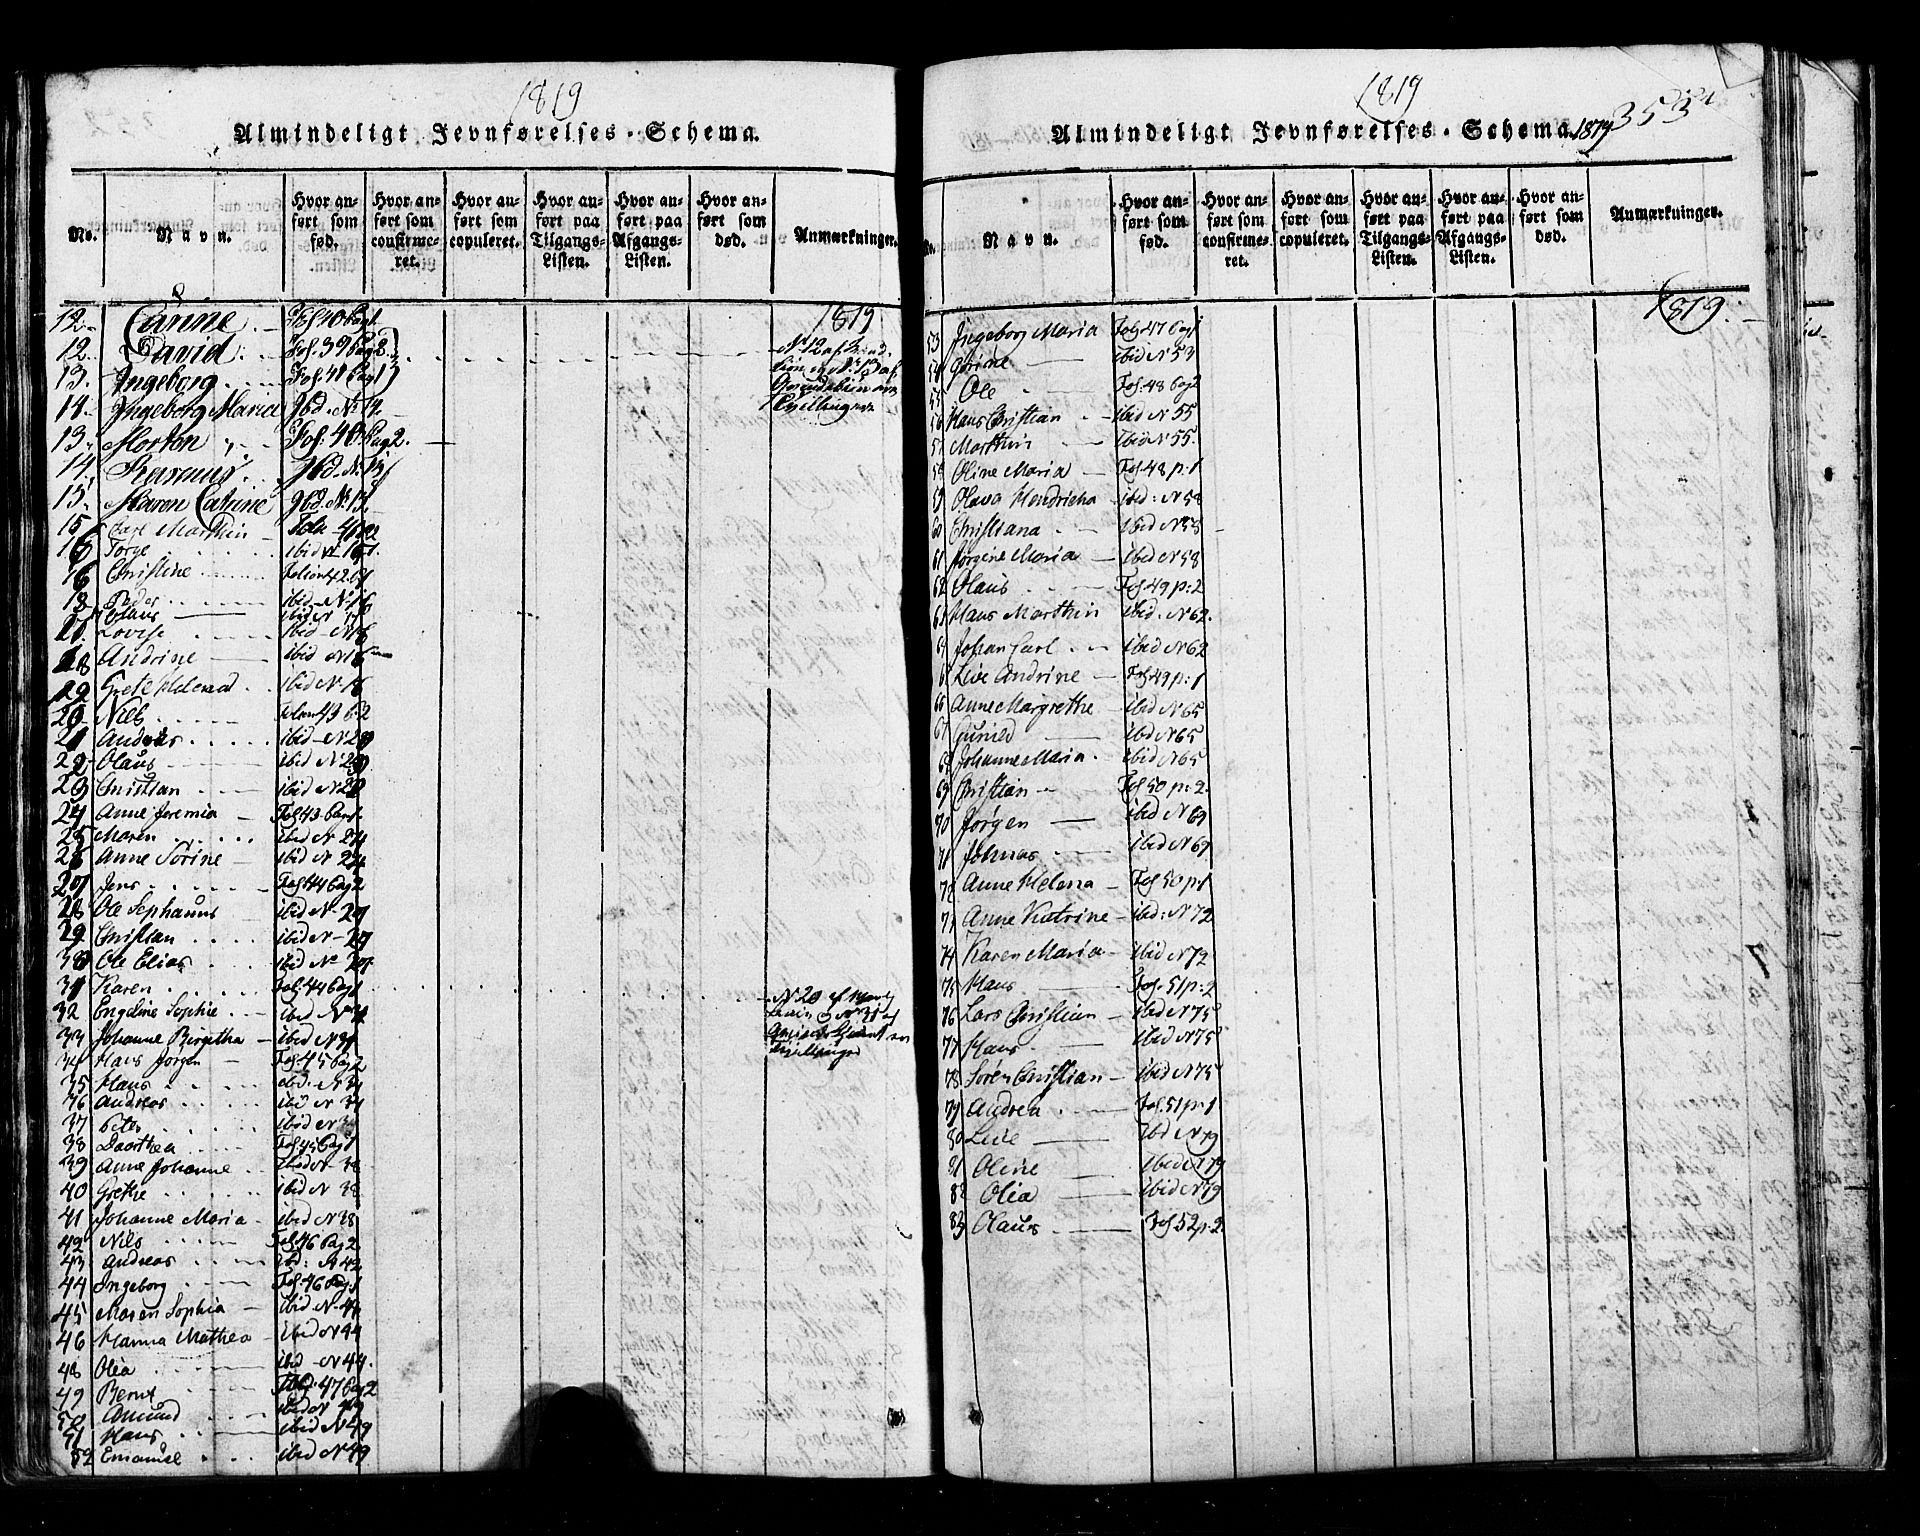 1819
Almindeligt Jevnførelses-Schema.
No.
Navn.
Hvor anført som fød.
Hvor anført som confirmeret.
Hvor anført som copuleret.
Hvor anført paa Tilgangs-Listen.
Hvor anført paa Afgangs-Listen.
Hvor anført som død.
Anmærkninger.
1819
12. Carine Fol 40 Pag 1.
12. David Fol. 39 Pag 2.
13. Ingeborg Fol. 41 Pag 1
14. Ingeborg Maria Ibd. No 12
13. Morton Fol. 40 Pag 2.
14. Rasmus Ibd. No. 13
15. Maren Catrine Ibd. No. 13
15 Carl Marthin
Torge ibid
16 Christine
18 Peder ibid No 16
Olaus ibid
21. Lovise ibid
18 Andrine ibid N 18
Grete Helena ibid
20 Nils
21 Andreas ibid N 20
22 Olaus ibid N 20
23 Christian ibid N 20
24 Anne Jeremia Fol 43 Pag 1.
25 Maren ibid N 24
26 Anne Sorine ibid N 24
27 Jens Fol 44 Pag 2
28 Ole Sephanus ibid N 27
29 Christian ibid N 27
30 Ole Elias ibid No 27
31 Karen Fol 44 Pag 1
32 Engeline Sophie ibid N 31
33 Johanne Birgitha ibid N 31
34 Hans Jørgen Fol 45 Pag 2
35 Hans ibd. N 34
36 Andreas ibid N 34
37 Peter ibid N 34
38 Dorthea Fol 45 Pag 1
39 Anne Johanne ibid N 38
40 Grethe ibid N 38
41 Johanne Maria ibid N 38
42 Nils Fol 46 Pag 2
43 Andreas ibd: N 42
44 Ingeborg Fol. 46 Pag. 1
45 Maren Sophia ibid N. 44
46 Hanna Mathea ibid N 44
48 Olea ibid N 44.
49 Bernt Fol. 47 Pag 2
50 Amund ibid N 49
51 Hans ibid N 49
52 Emanuel ibid N 49
1819
Almindeligt Jevnførelses-Schema. 1819
353
No.
Navn.
Hvor anført som fød.
Hvor anført som confirmeret.
Hvor anført som copuleret.
Hvor anført paa Tilgangs-Listen.
Hvor anført paa Afgangs-Listen.
Hvor anført som død.
Anmærkninger.
1819.
53 Ingeborg Maria Fol 47 Pag 1
54 Gorine ibid N 53
55 Ole Fol. 48 Pag 2
56 Hans Christian ibid N 55
57 Marthin ibid N 55.
58 Oline Maria Fol. 48 p: 1
59 Olava Hendricha ibid: N 58
60 Christiana ibid N 58
61 Jørgine Maria ibid N 58
62 Olaus Fol. 49 p: 2
63 Hans Marthin ibid. N 62.
64 Johan Carl ibid N 62
65 Live Andrine Fol 49 p: 1
66 Anne Margrethe ibid N 65
67 Gunild ibid N 65
68 Johanne Maria ibid N 65
69 Christian Fol 50 p: 2.
70 Jørgen ibid N 69
71 Johnas ibid N 69
72 Anne Helena Fol 50 p 1
73 Anne Katrine ibid: N 72
74 Karen Maria ibid N 72
75 Hans Fol. 51 p: 2
76 Lars Christian ibid N 75
77 Hans ibid N 75
78 Søren Christian ibid N 75
79 Andrea Fol. 51 p: 1
80 Live ibd N 79
81 Oline ibid N 79
82 Olea ibid N 79
83 Olaus Fol 52 p: 2.